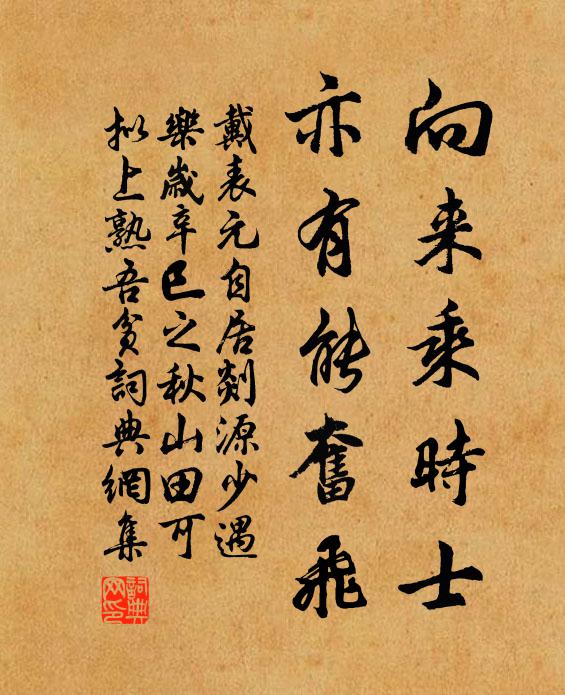 向来乘時士
亦有能奮飛
戴表元自居剡源少遇
樂歲辛巳之秋山田可
擬上熟吾貧詞典網集
詞典网印